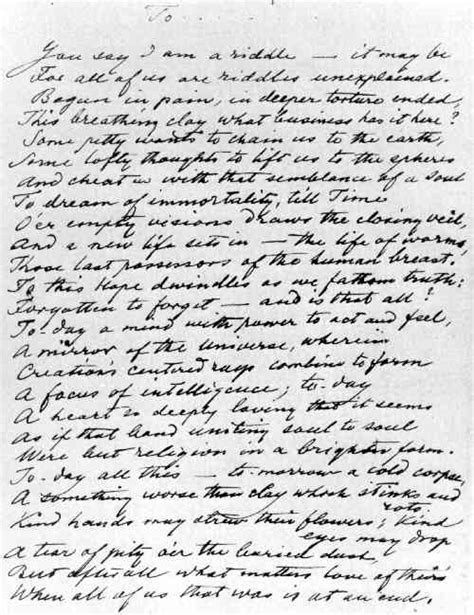 To . . . . .
You say I am a riddle – it may be
For all of us are riddles unexplained.
Begun in pain, in deeper torture ended,
This breathing clay what business has it here?
Some petty wants to chain us to the earth,
Some lofty thoughts to lift us to the spheres
And cheat us with that semblance of a soul
To dream of immortality, till Time
O'er empty visions draws the closing veil,
And a new life sets in – the life of worms,
Those last possessors of the human breast.
To this Hope dwindles as we fathom truth:
Forgotten to forget – and is that all?
To-day a mind with power to act and feel,
A mirror of the universe, wherein
Creation's centered rays combine to form
A focus of intelligence; to-day
A heart so deeply loving that it seems
As if that band uniting soul to soul
Were but religion in a brighter form.
To-day all this – to-morrow a cold corpse,
A something worse than clay which stinks and
rots
Kind hands may strew their flowers; kind
eyes may drop
A tear of pity o'er the buried dust,
But after all what matters love of theirs
When all of us that was is at an end.